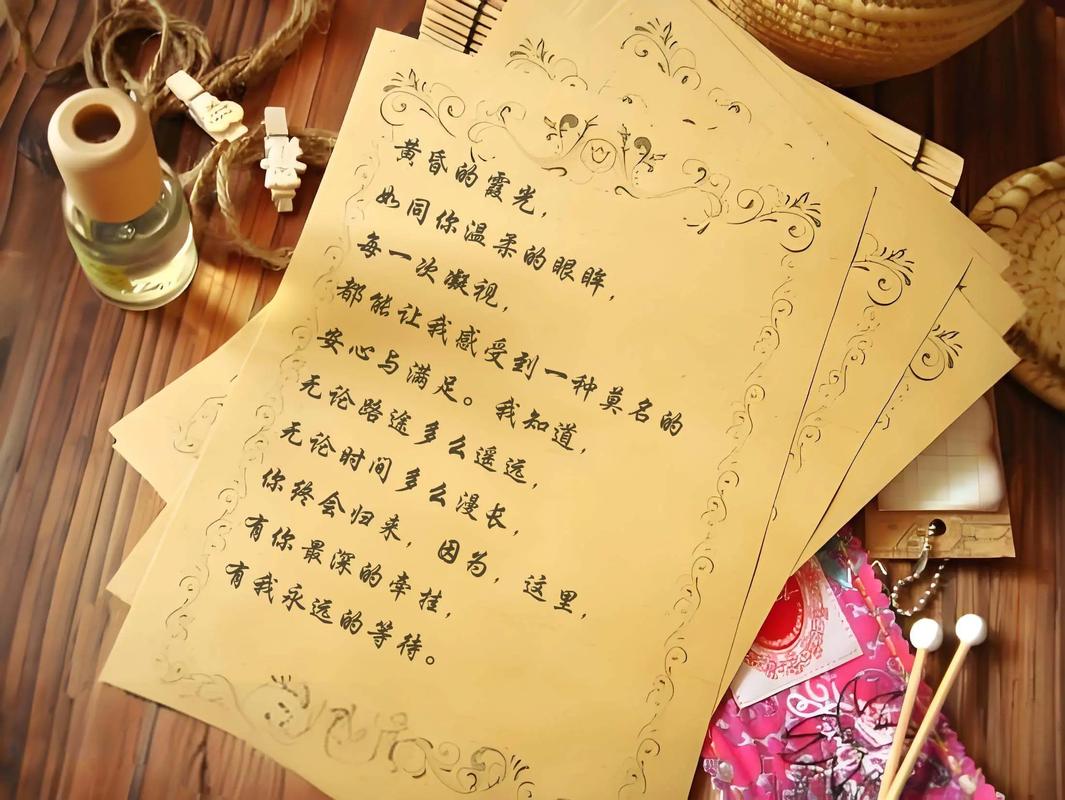 黄昏的霞光，
如同你温柔的眼眸，
每一次凝视，
都能让我感受到一种莫名的
安心与满足。我知道，
无论路途多么遥远，
无论时间多么漫长，
你终会归来，因为，这里，
有你最深的牵挂，
有我永远的等待。